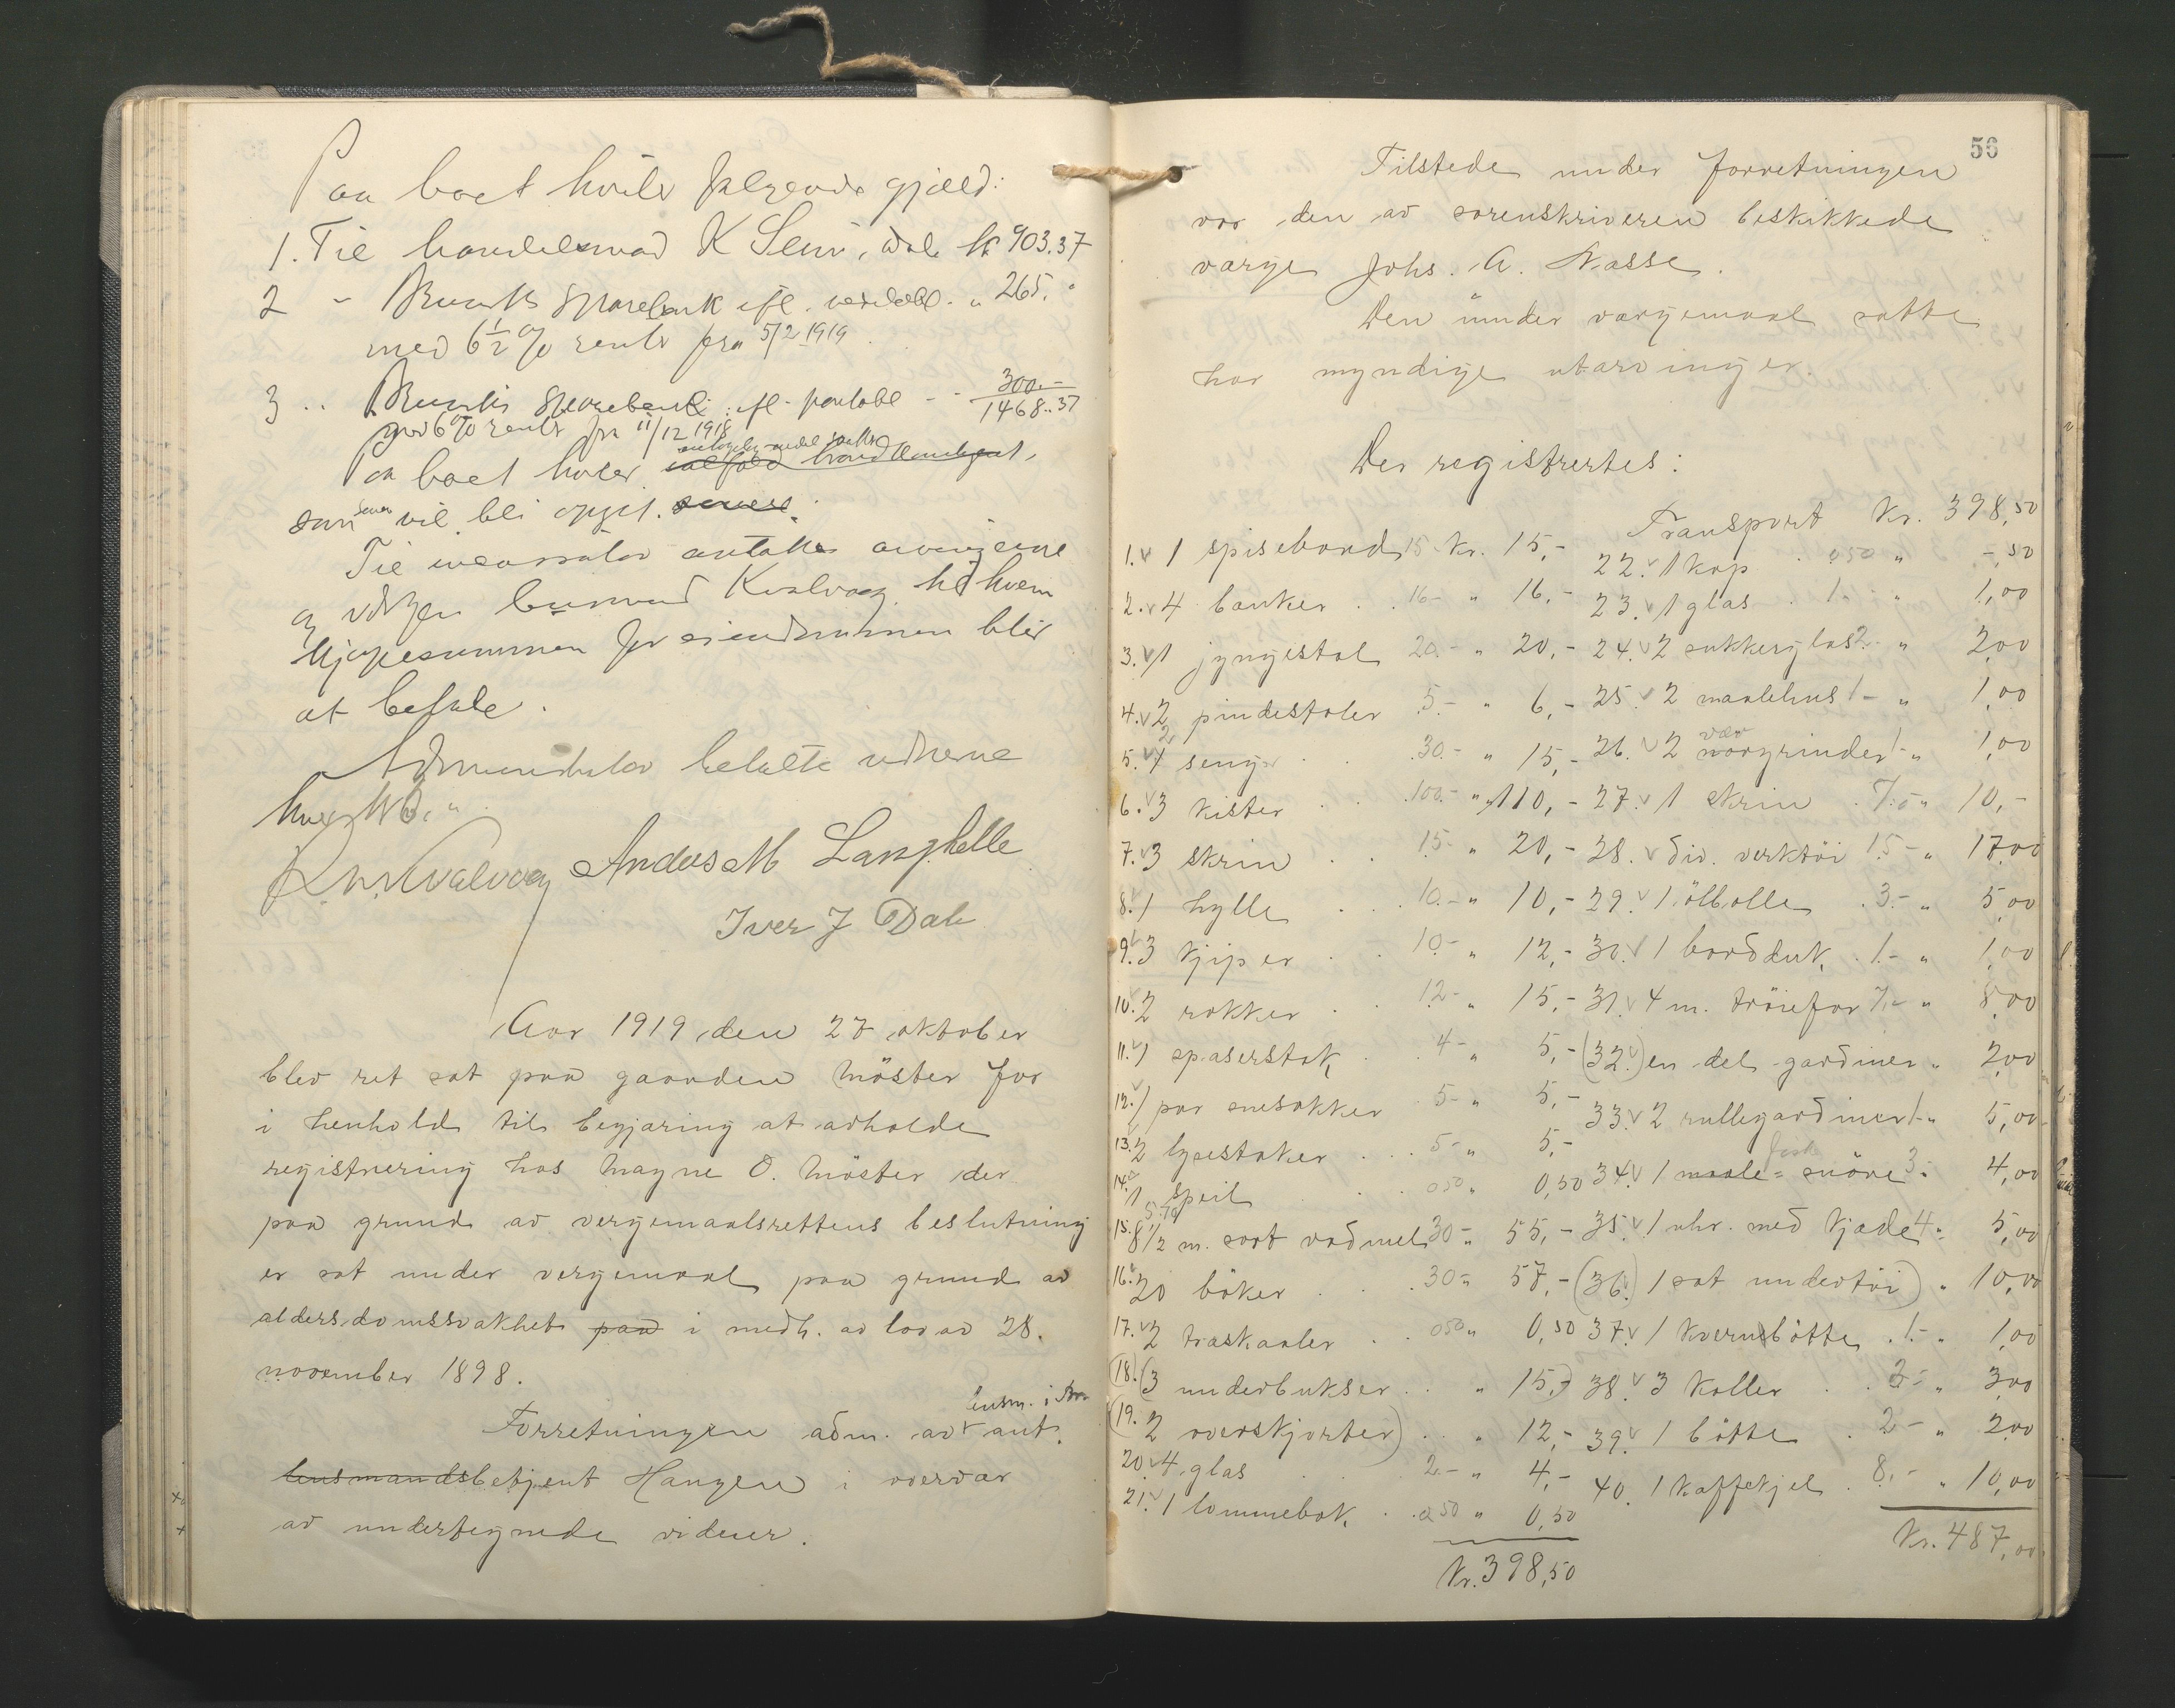 Paa boet hviler følgende gjæld:
1. Til handelsmand K Leni, Dale kr 903.37
2 " Bruviks Sparebank ifl. vekselobl. " 265. "
med 6½ % rente fra 5/2 1919
3 .. Bruviks Sparebank ifl. pantobl - - 300.-
1468..37
med 6% rente fra 11/12 1918
Paa boet hviler
som senere vil bli opgit. senere.
Til incassator antokes arvingerne
og vergen lensmand Kvalvaag til hvem
kjøpesummen for eiendommen blir
at betale.
Administrator betalte vidnerne
hver kr
K. M. Kvalvaag Anders M Langhelle
Iver J Dale
Aar 1919 den 27 oktober
blev ret sat paa gaarden Möster for
i henhold til begjæring at avholde
registrering hos Magne O. Möster der
paa grund av vergemaalsrettens beslutning
er sat under vergemaal paa grund av
aldersdomssvakhet paa i medh. av lov av 28.
november 1898.
lensm. i Bru
Forretningen adm. av aut.
lensmandsbetjent Haugen i overvær
av undertegnede vidner.
56
Tilstede under forretningen
var den av sorenskriveren beskikkede
værge Johs. A. Nasse.
Den under værgemaal satte
har myndige utarvinger.
Der registrertes:
1. 1 spisebord 15 kr. 15,-
2. 4 bænker . . 16- " 16,-
3. 1 gyngestol 20.- " 20,-
4. 2 pindestoler 5.- " 6,-
5. 2 senger . . 30.- " 15,-
6. 3 kister . . 100.- " 110,-
7. 3 skrin . . 15- " 20,-
8. 1 hylle . . 10.- " 10,-
9. 3 kjiper . . 10.- " 12,-
10. 2 rokker . 12- " 15,-
11. 1 spaserstok . . 4- " 5,-
12. 1 par snesokker . 5- " 5,-
13. 2 lysestaker . . . 5- " 5,-
14. 1 speil . . 050 " 0,50
15. 8½ m. sort vadmel 30- " 55,-
16. 20 böker . . . 30- " 57,-
17. 2 træskaaler . . 050 " 0,50
(18.) (3 underbukser . . " 15,-)
(19. 2 overskjorter) . . " 12,-
20. 4 glas . . 2.- " 4,-
21. 1 lommebok . . 050 " 0,50
Kr. 398,50
Transport Kr. 398,50
22. 1 kop . 050 " -,50
23. 1 glas . 1.- " 1,00
24. 2 sukkerglas 2.- " 2,00
25. 2 maalehus 1- " 1,00
vær
26. 2 norgrinder 1- " 1,00
27. 1 skrin . 7.- " 10,-
28. div. verktöi 15- " 17,00
29. 1 ölbolle . 3.- " 5,00
30. 1 bordduk . 1.- " 1,00
31. 4 m. tröiefor 7.- " 8,00
(32.) en del gardiner " 2,00
33. 2 rullegardiner 1- " 5,00
fiske
34. 1 maale= snöre 3 " 4,00
35. 1 uhr. med kjæde 4 " 5,00
(36. 1 sæt undertöi) " 10,00
37. 1 kvernbötte . 1.- " 1,00
38. 3 koller . . 2- " 3,00
39. 1 bötte . 2- " 2,00
40. 1 kaffekjel . 8.- " 10,00
Kr. 487,00